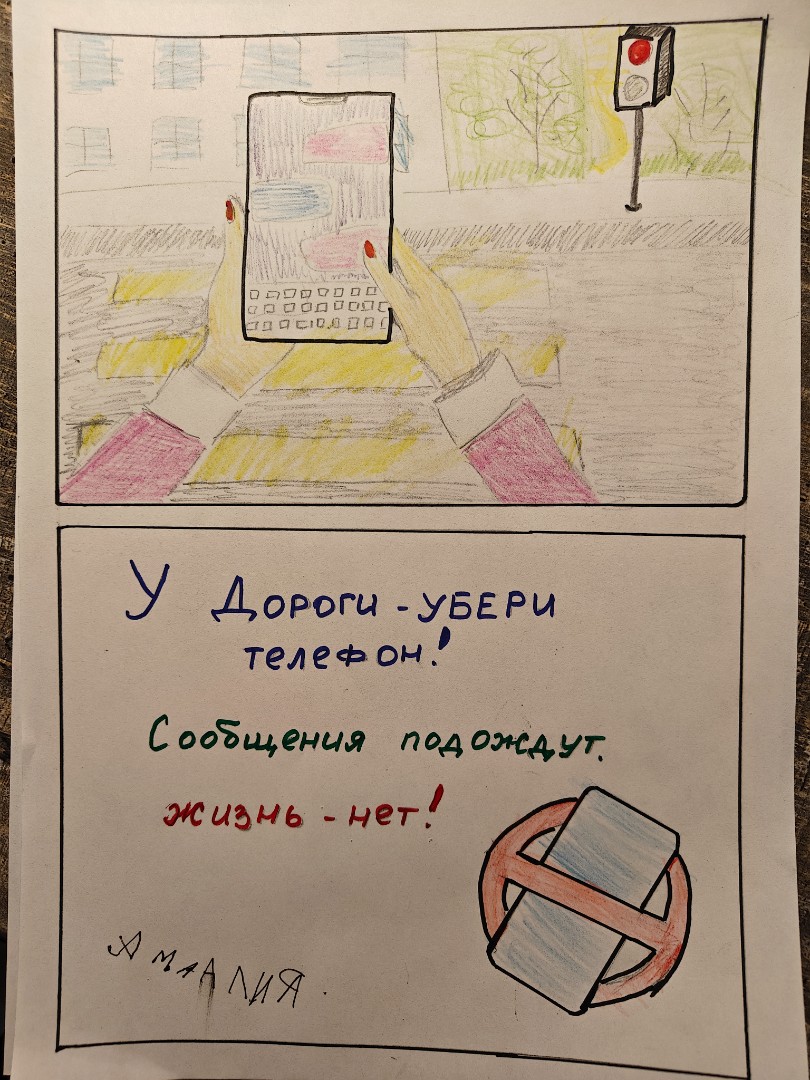 У Дороги - УБЕРИ
телефон!
Сообщения подождут.
жизнь - нет!
АМАЛИЯ.